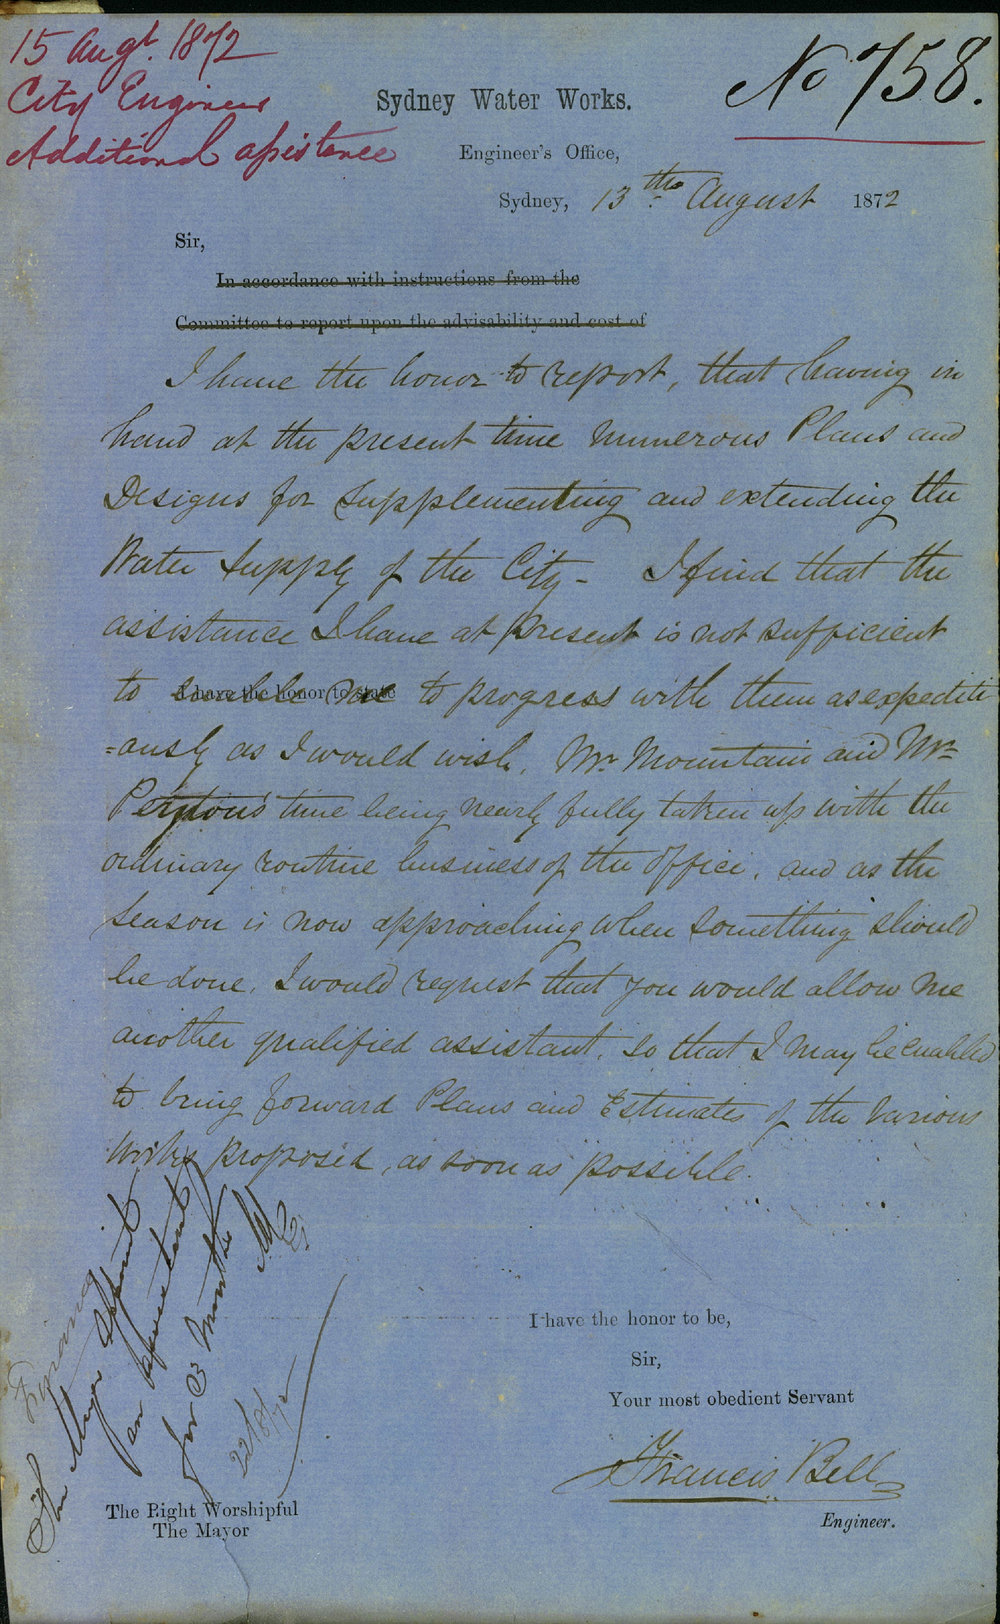 15 Augt. 1872
City Engineer
Additional assistance
No 758.
Sydney Water Works.
Engineer's Office,
Sydney, 13th August 1872
Sir,
In accordance with instructions from the
Committee to report upon the advisability and cost of
I have the honor to report, that having in
hand at the present time numerous Plans and
Designs for supplementing and extending the
Water Supply of the City - I find that the
assistance I have at present is not sufficient
I have the honor to state
to enable me to progress with them as expediti
=ously as I would wish. Mr. Mountain and Mr.
time being nearly fully taken up with the
ordinary routine business of the Office, and as the
Season is now approaching when Something should
be done. I would request that you would allow me
another qualified assistant, so that I may be enabled
to bring forward Plans and Estimates of the various
Works proposed, as soon as possible.
Finance
The Mayor Appoint
an assistant
for 3 Months
22/8/72
I have the honor to be,
Sir,
Your most obedient Servant
Francis Bell
Engineer.
The Right Worshipful
The Mayor